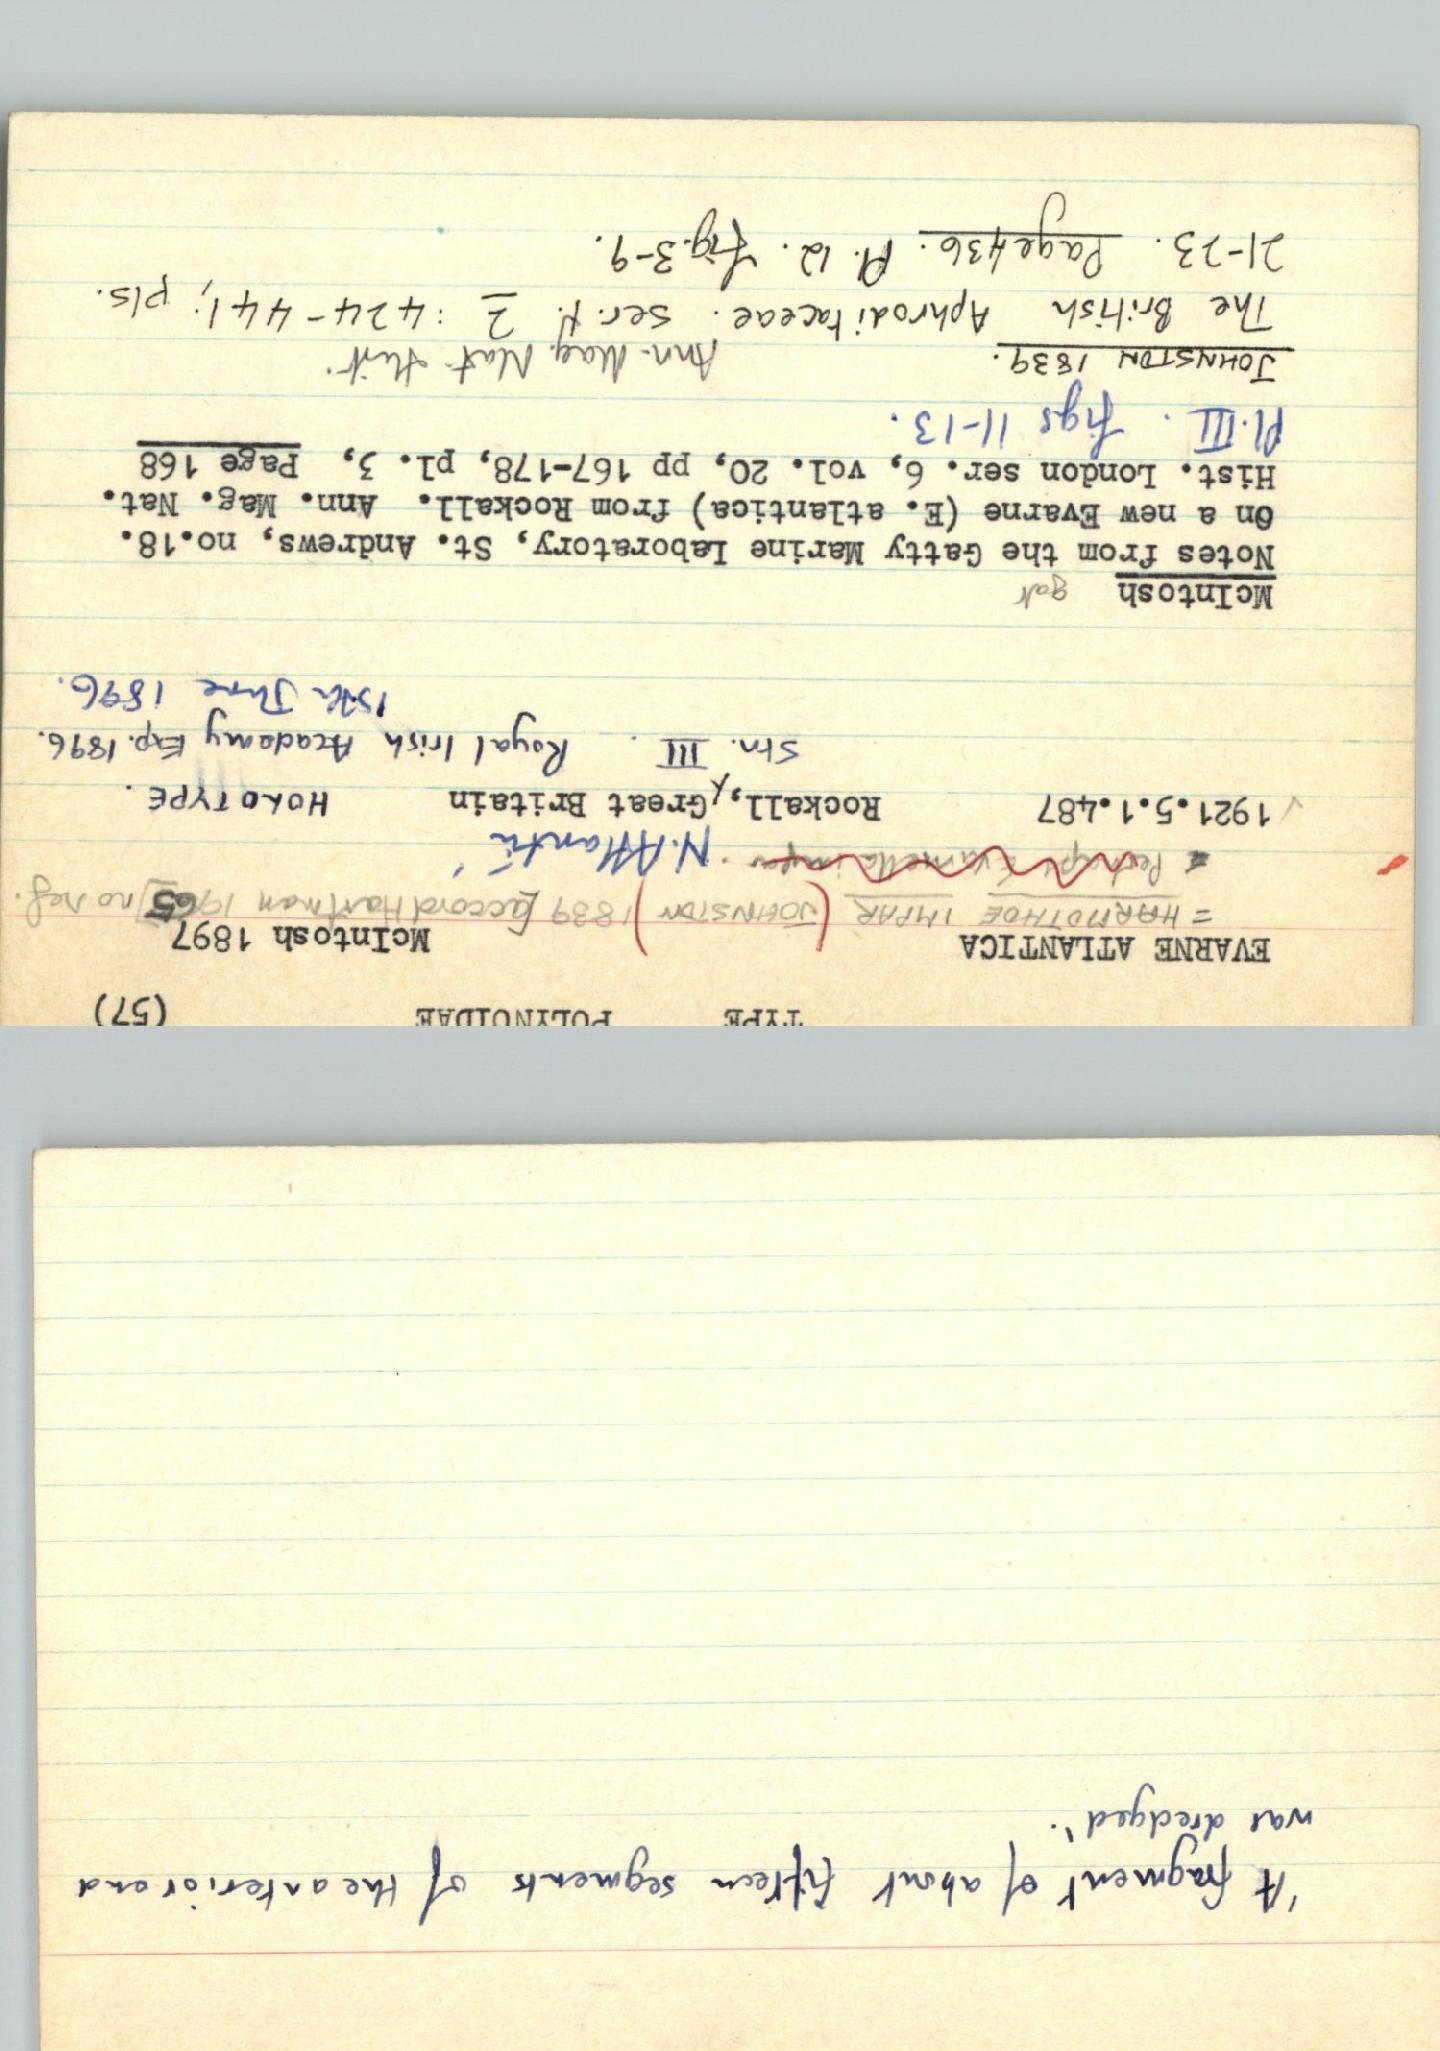 TYPE POLYNOIDAE (57)
EVARNE ATLANTICA McIntosh 1897
= HARMOTHOE IMPAR (JOHNSTON) 1839 [accord Hartman 1965] no ref.
= Perhaps Evarnella impar. N. Atlantic
1921.5.1.487 Rockall, Great Britain HOLOTYPE.
Stn. III. Royal Irish Academy Exp. 1896.
15th June 1896.
McIntosh
Notes from the Gatty Marine Laboratory, St. Andrews, no.18.
On a new Evarne (E. atlantica) from Rockall. Ann. Mag. Nat.
Hist. London ser. 6, vol. 20, pp 167-178, pl. 3, Page 168
Pl. III. figs 11-13.
JOHNSTON 1839. Ann. Mag. Nat. Hist.
The British Aphroditaceae. ser. 2 : 424-441; pls.
21-23. Page 436. Pl. 12. fig. 3-9.
'A fragment of about fifteen segments of the anterior end
was dredged'.